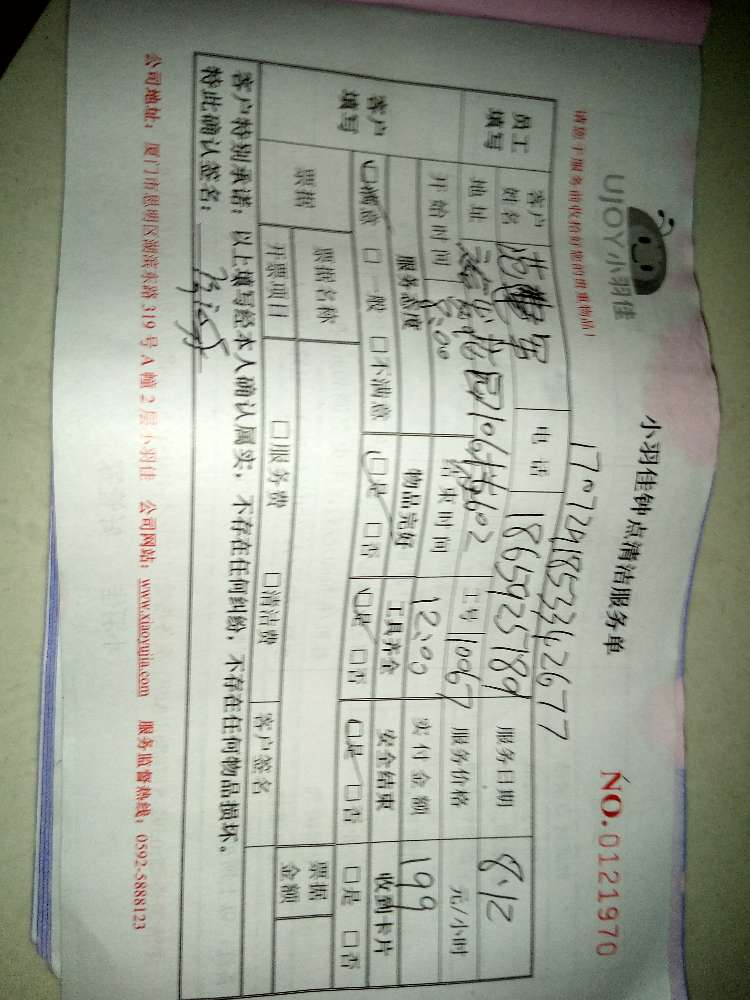 UJOY小羽佳
小羽佳钟点清洁服务单
NO.0121970
请您于服务前收拾好您的贵重物品！
1707291853342677
员工填写 客户姓名 电话 18659257189 服务日期 8.12
地址 花园 602 工号 10067 服务价格 元/小时
开始时间 8:00 结束时间 12:00 实付金额 199
客户填写 服务态度 物品完好 工具齐全 安全结束 收到卡片
☑满意 □一般 □不满意 ☑是 □否 ☑是 □否 ☑是 □否 □是 □否
票据 票据名称 票据金额
开票项目 □服务费 □清洁费 客户签名
客户特别承诺：以上填写经本人确认属实，不存在任何纠纷，不存在任何物品损坏。
特此确认签名：
公司地址：厦门市思明区湖滨东路319号A幢2层小羽佳 公司网站：www.xiaoyujia.com 服务监督热线：0592-5888123